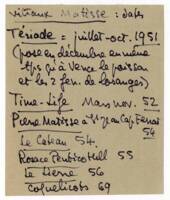 vitraux Matisse : dates
Tériade = juillet-oct. 1951
(pose en décembre en même
tps qu'à Vence le poisson
et les 2 fen. de losanges)
Time-Life Mars nov. 52
Pierre Matisse à St Jean Cap Ferrat
54
Le Cateau 54.
Rosace Pentico Hill 55
Le Lierre 56
Coquelicots 69